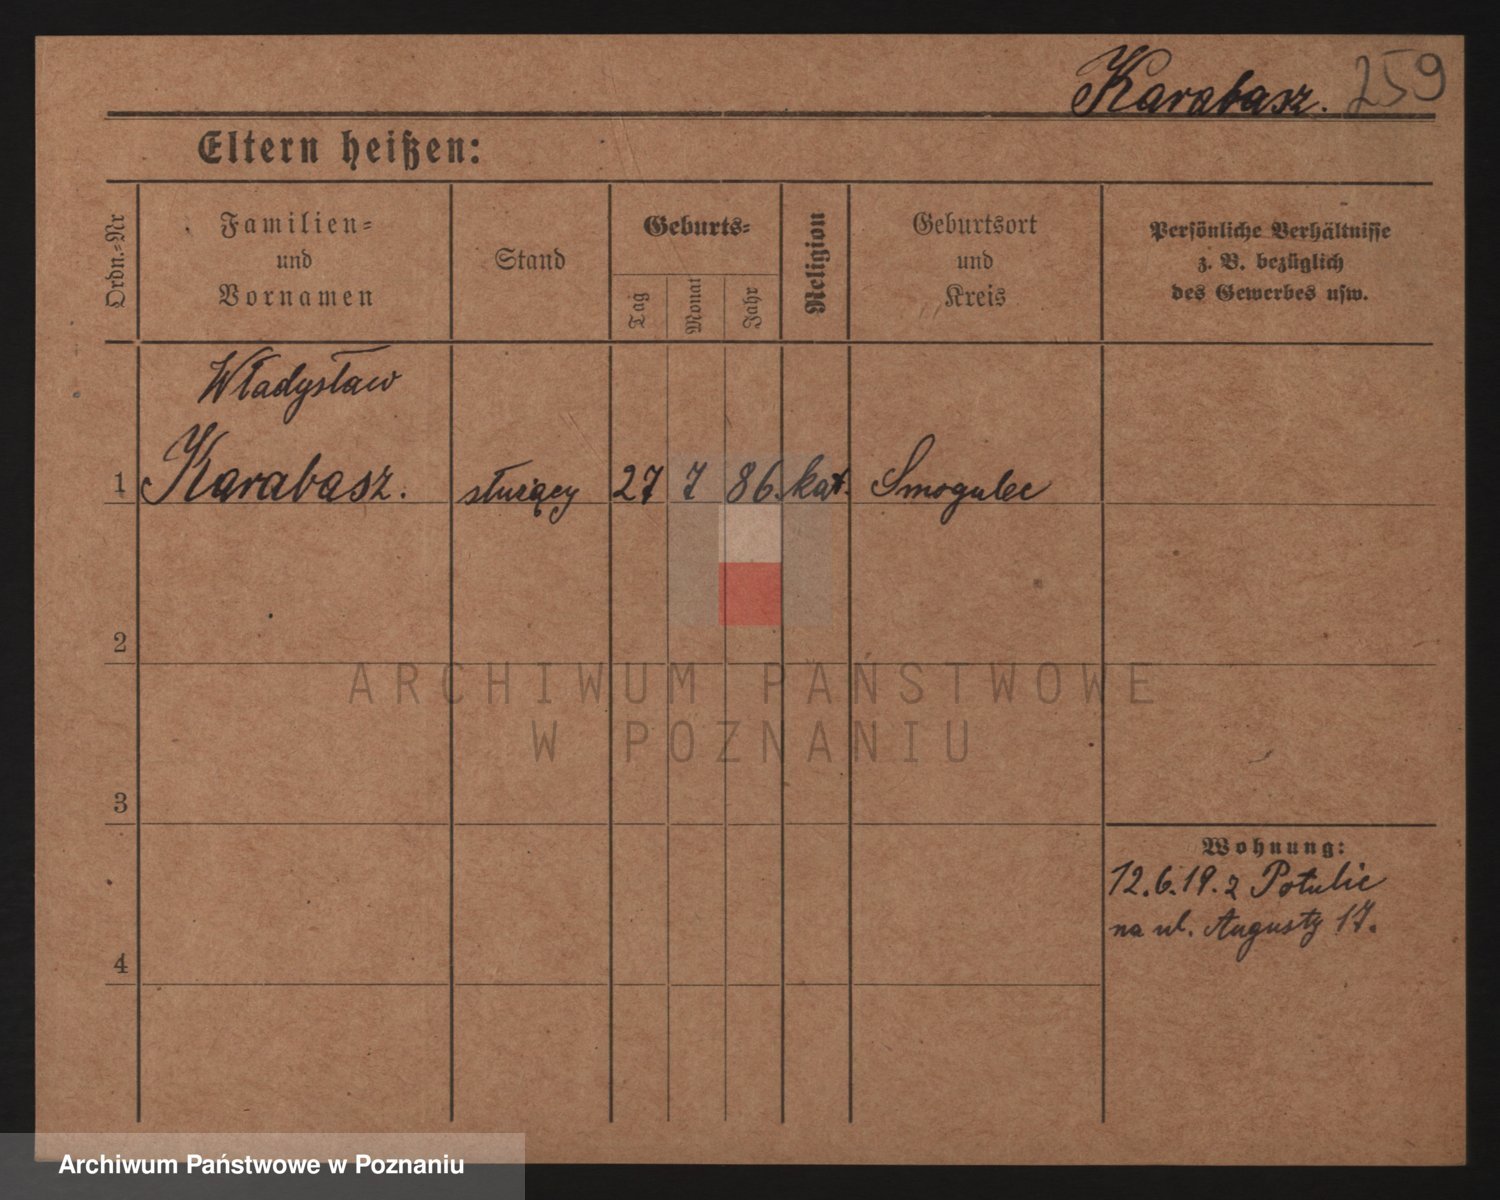 Karabasz. 259
Eltern heißen:
Ordn.=Nr
Familien=
und
Vornamen
Stand
Geburts=
Tag
Monat
Jahr
Religion
Geburtsort
und
Kreis
Persönliche Verhältnisse
z. B. bezüglich
des Gewerbes usw.
Władysław
1 Karabasz. służący 27 7 86. kat. Smogulec
2
ARCHIWUM PAŃSTWOWE
W POZNANIU
3
Wohnung:
12.6.19. z Potulic
na ul. Augusty 17.
4
Archiwum Państwowe w Poznaniu